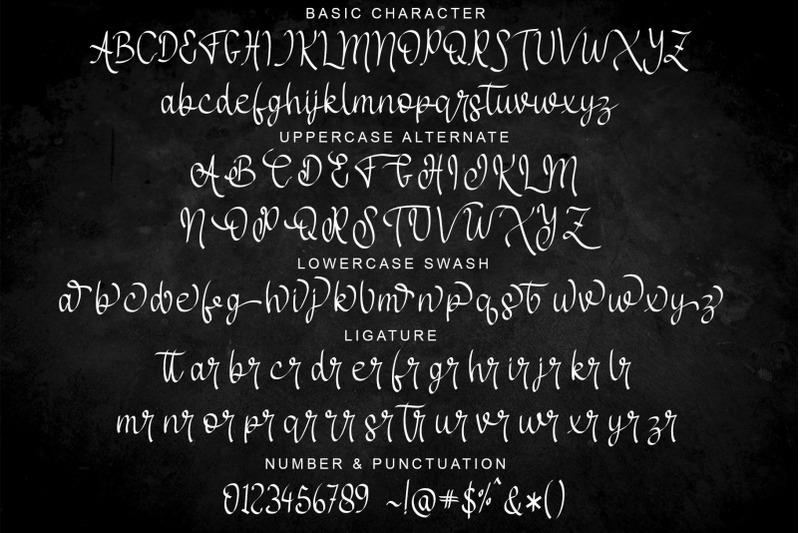 BASIC CHARACTER
ABCDEFGHIJKLMNOPQRSTUVWXYZ
abcdefghijklmnopqrstuvwxyz
UPPERCASE ALTERNATE
ABCDEFGHIJKLM
NOPQRSTUVWXYZ
LOWERCASE SWASH
LIGATURE
tt ar br cr dr er fr gr hr ir jr kr lr
mr nr or pr qr rr sr tr ur vr wr xr yr zr
NUMBER & PUNCTUATION
0123456789 ~!@#$%^&*()